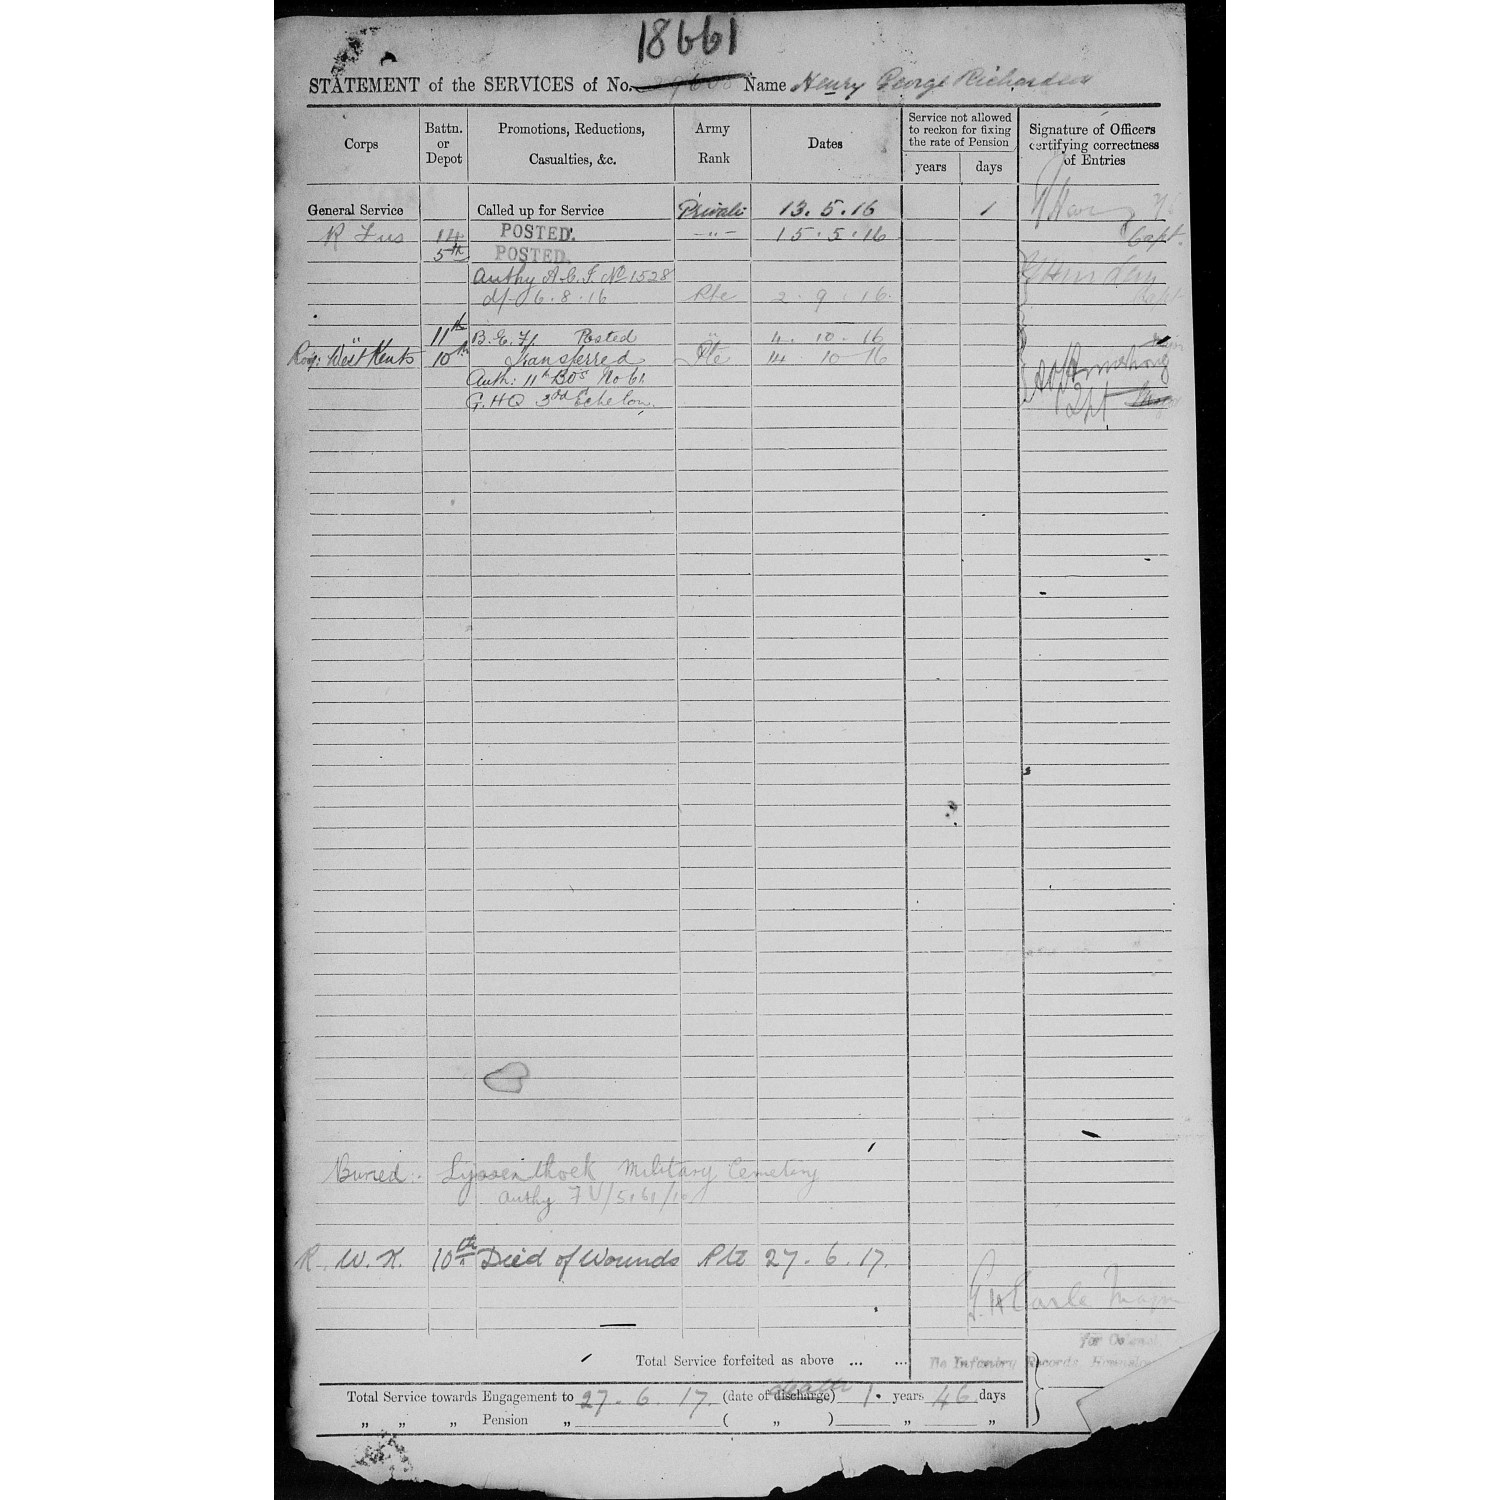 18661
STATEMENT of the SERVICES of No. Name Henry George Richardson
Corps
Battn. or Depot
Promotions, Reductions, Casualties, &c.
Army Rank
Dates
Service not allowed to reckon for fixing the rate of Pension
years days
Signature of Officers certifying correctness of Entries
General Service Called up for Service Private 13.5.16 1
R Fus 14 POSTED. -"- 15.5.16 Capt.
5th POSTED.
Authy A.C.I. No 1528
d/- 6.8.16 Pte 2.9.16
11th B.E.F. Posted " 4.10.16
Roy: West Kents 10th Transferred Pte 14 10 16 Armstrong
Auth: 11th BOs No 61 Capt
G.HQ 3rd Echelon.
Buried:- Lyssenthoek Military Cemetery
Authy
R. W. K. 10th Died of Wounds Pte 27.6.17.
Earle Major
for Colonel
Total Service forfeited as above ... ... Infantry Records, Hounslow
Total Service towards Engagement to 27.6.17. (date of discharge) death 1. years 46 days
" " " Pension " ( " ) " "